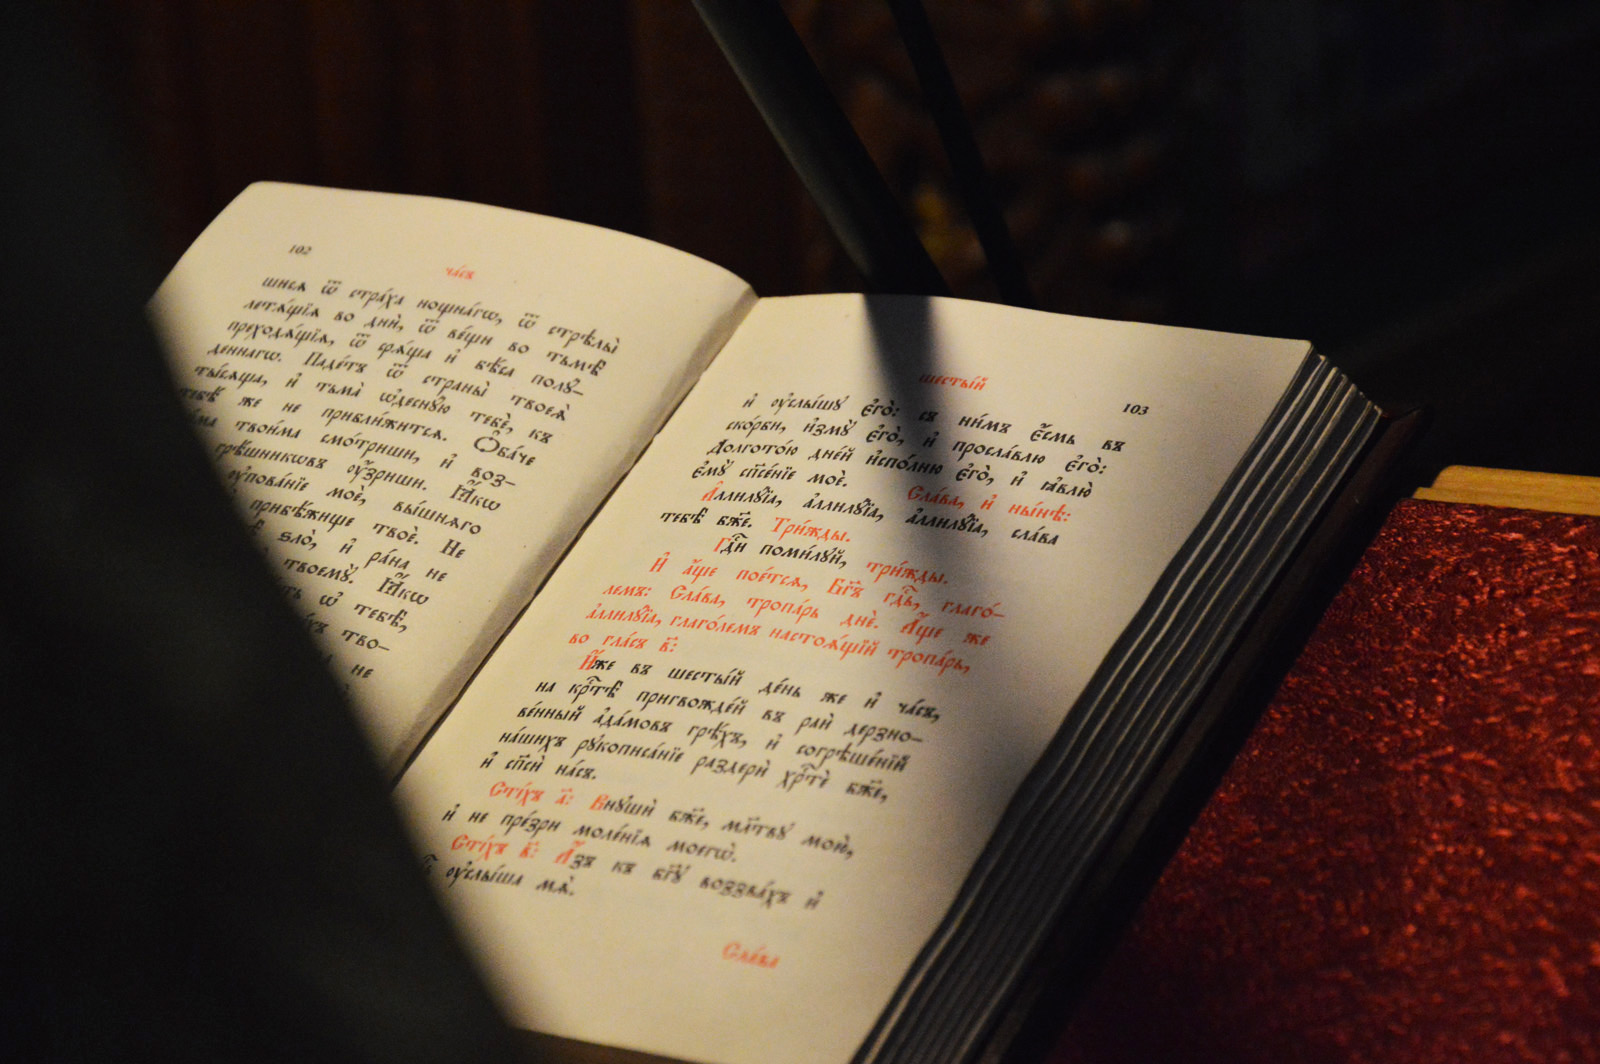 102
ча́съ
шисѧ ѿ стра́ха нощна́гѡ, ѿ стрѣлы̀
летѧ́щїѧ во днѝ, ѿ ве́щи во тьмѣ̀
преходѧ́щїѧ, ѿ срѧ́ща и҆ бѣ́са полꙋ́-
деннагѡ. Паде́тъ ѿ страны̀ твоеѧ̀
ты́сѧща, и҆ тьма̀ ѡ҆деснꙋ́ю тебє̀, къ
тебѣ́ же не прибли́житсѧ. Ѻ҆ба́че
твои́ма смо́триши, и҆ воз-
грѣ́шникѡвъ ᲂу҆́зриши. Ꙗ҆́кѡ
ᲂу҆пова́нїе моѐ, вы́шнѧго
прибѣ́жище твоѐ. Не
ѕло̀, и҆ ра́на не
твоемꙋ̀. Ꙗ҆́кѡ
ѡ҆ тебѣ̀,
тво-
не
шесты́й
103
и҆ ᲂу҆слы́шꙋ є҆го̀: съ ни́мъ є҆́смь въ
ско́рби, и҆змꙋ̀ є҆го̀, и҆ просла́влю є҆го̀:
Долгото́ю дне́й и҆спо́лню є҆го̀, и҆ ꙗ҆влю̀
є҆мꙋ̀ сп҃се́нїе моѐ. Сла́ва, и҆ ны́нѣ:
А҆ллилꙋ́їа, а҆ллилꙋ́їа, а҆ллилꙋ́їа, сла́ва
тебѣ̀ бж҃е. Три́жды.
Гдⷭ҇и поми́лꙋй, три́жды.
И҆ а҆́ще пое́тсѧ, Бг҃ъ гдⷭ҇ь, глаго́-
лемъ: Сла́ва, тропа́рь днѐ. А҆́ще же
а҆ллилꙋ́їа, глаго́лемъ настоѧ́щїй тропа́рь,
во гла́съ в҃:
И҆́же въ шесты́й де́нь же и҆ ча́съ,
на крⷭ҇тѣ̀ пригвожде́й въ раѝ дерзно-
ве́нный а҆да́мовъ грѣ́хъ, и҆ согрѣше́нїй
на́шихъ рꙋкописа́нїе раздерѝ хрⷭ҇тѐ бж҃е,
и҆ сп҃сѝ на́съ.
Сті́хъ а҃: Внꙋшѝ бж҃е, мл҃твꙋ мою̀,
и҆ не пре́зри моле́нїѧ моегѡ̀.
Сті́хъ в҃: А҆́зъ къ бг҃ꙋ воззва́хъ и҆
ᲂу҆слы́ша мѧ̀.
Сла́ва